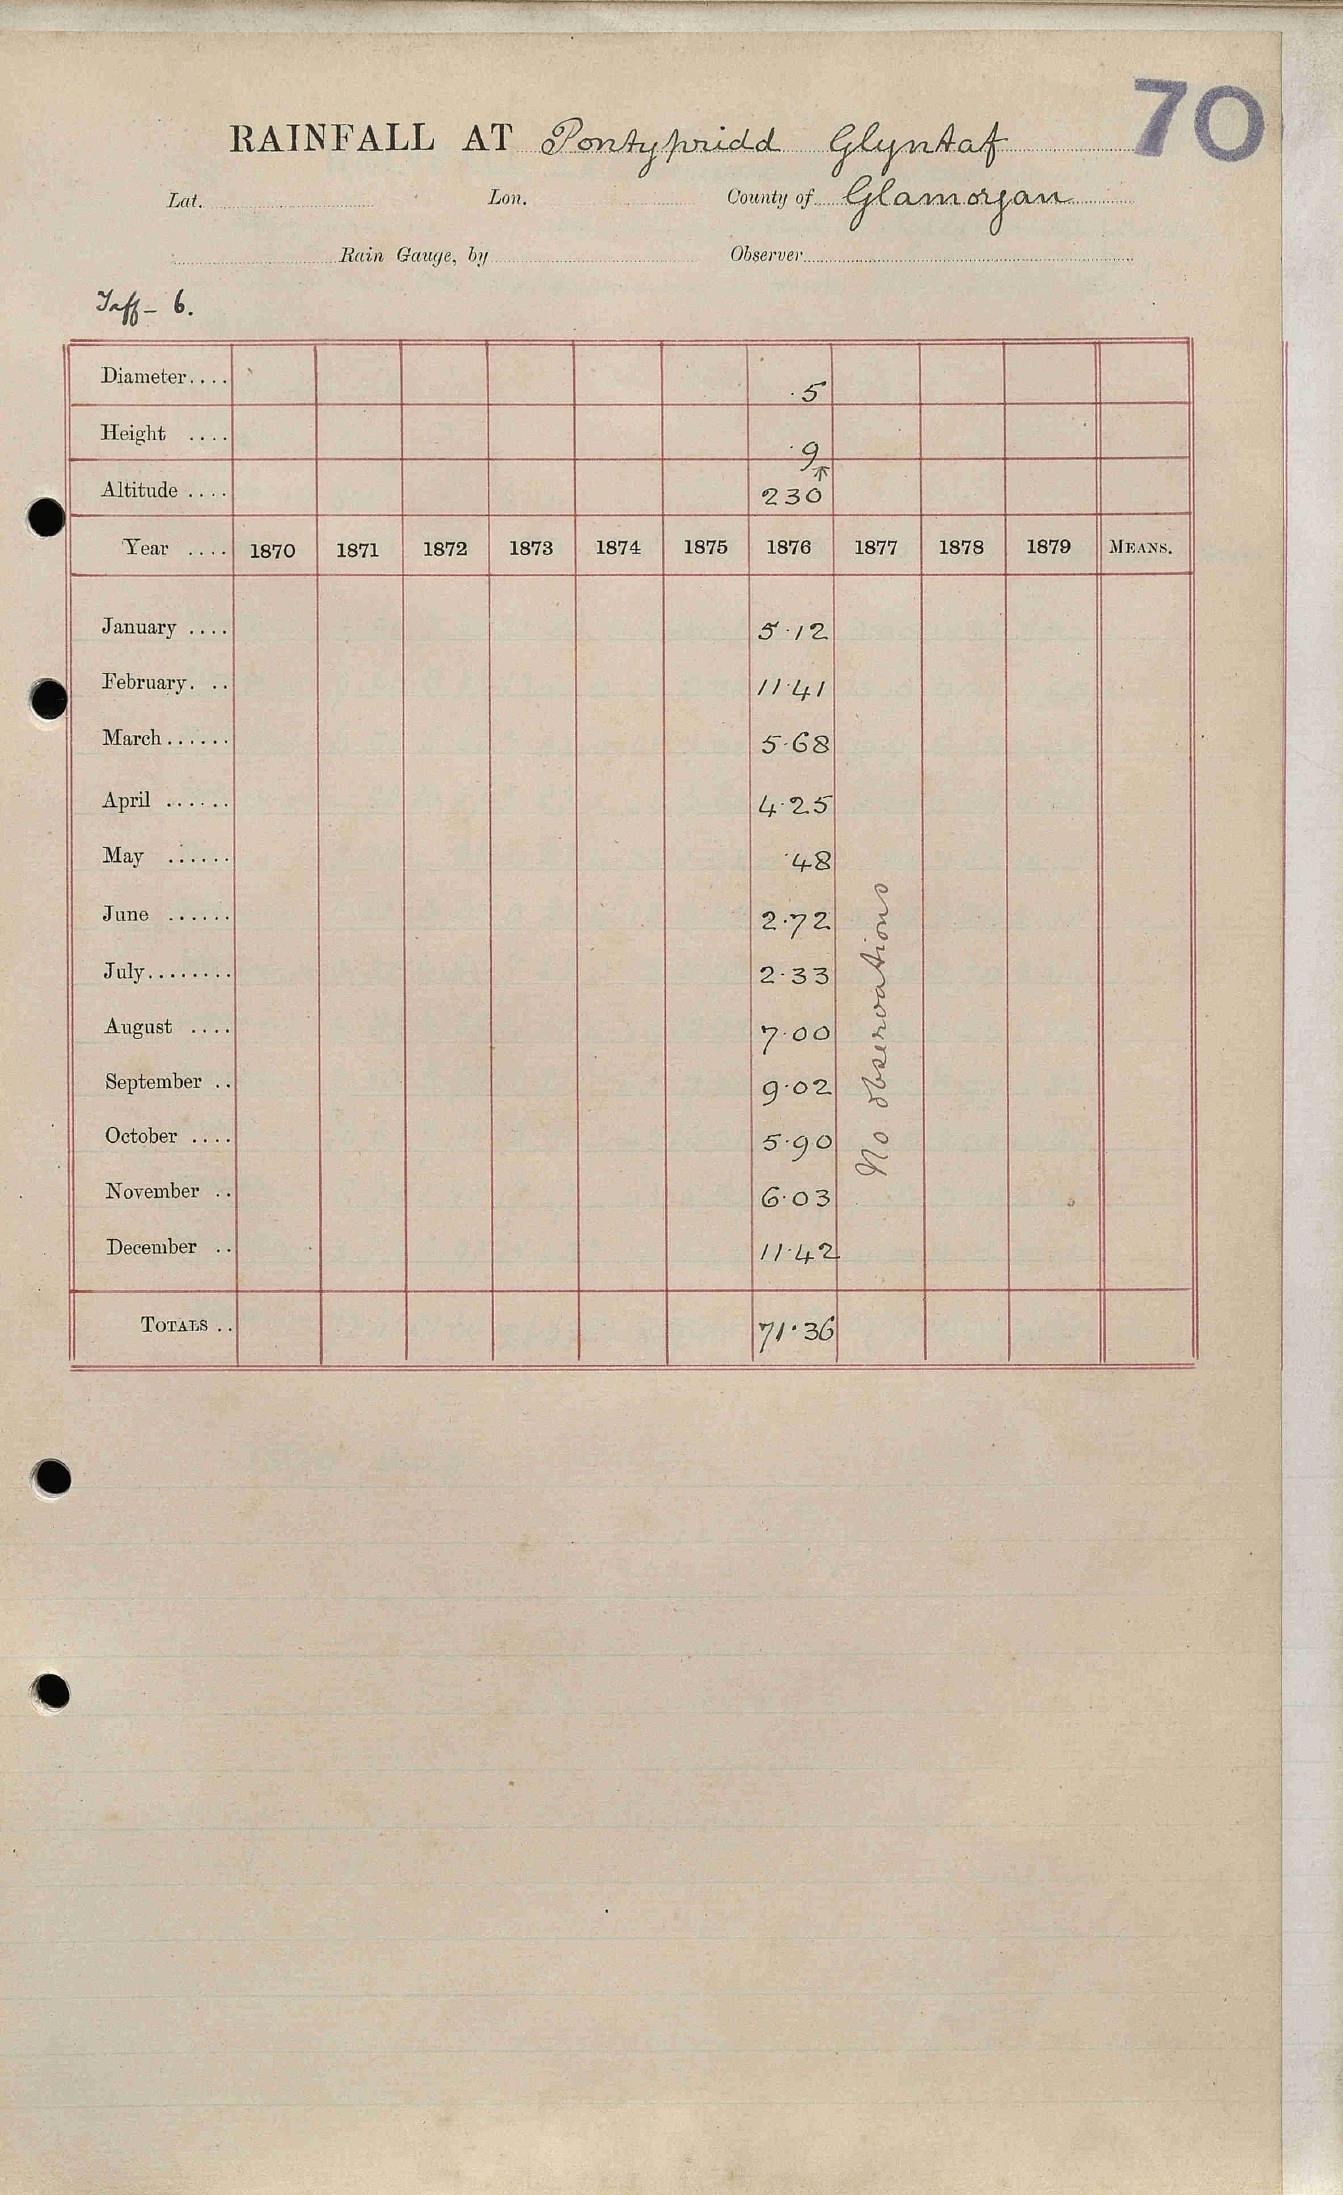 70
RAINFALL AT Pontypridd Glyntaf
Lat. Lon. County of Glamorgan
Rain Gauge, by Observer
Taff - 6.
Diameter.... 5
Height .... 9
Altitude .... 230
Year .... 1870 1871 1872 1873 1874 1875 1876 1877 1878 1879 MEANS.
January .... 5.12
February. .. 11.41
March...... 5.68
April ...... 4.25
May ...... .48
June ...... 2.72
July........ 2.33
August .... 7.00
September .. 9.02
October .... 5.90
November .. 6.03
December .. 11.42
No observations
TOTALS .. 71.36